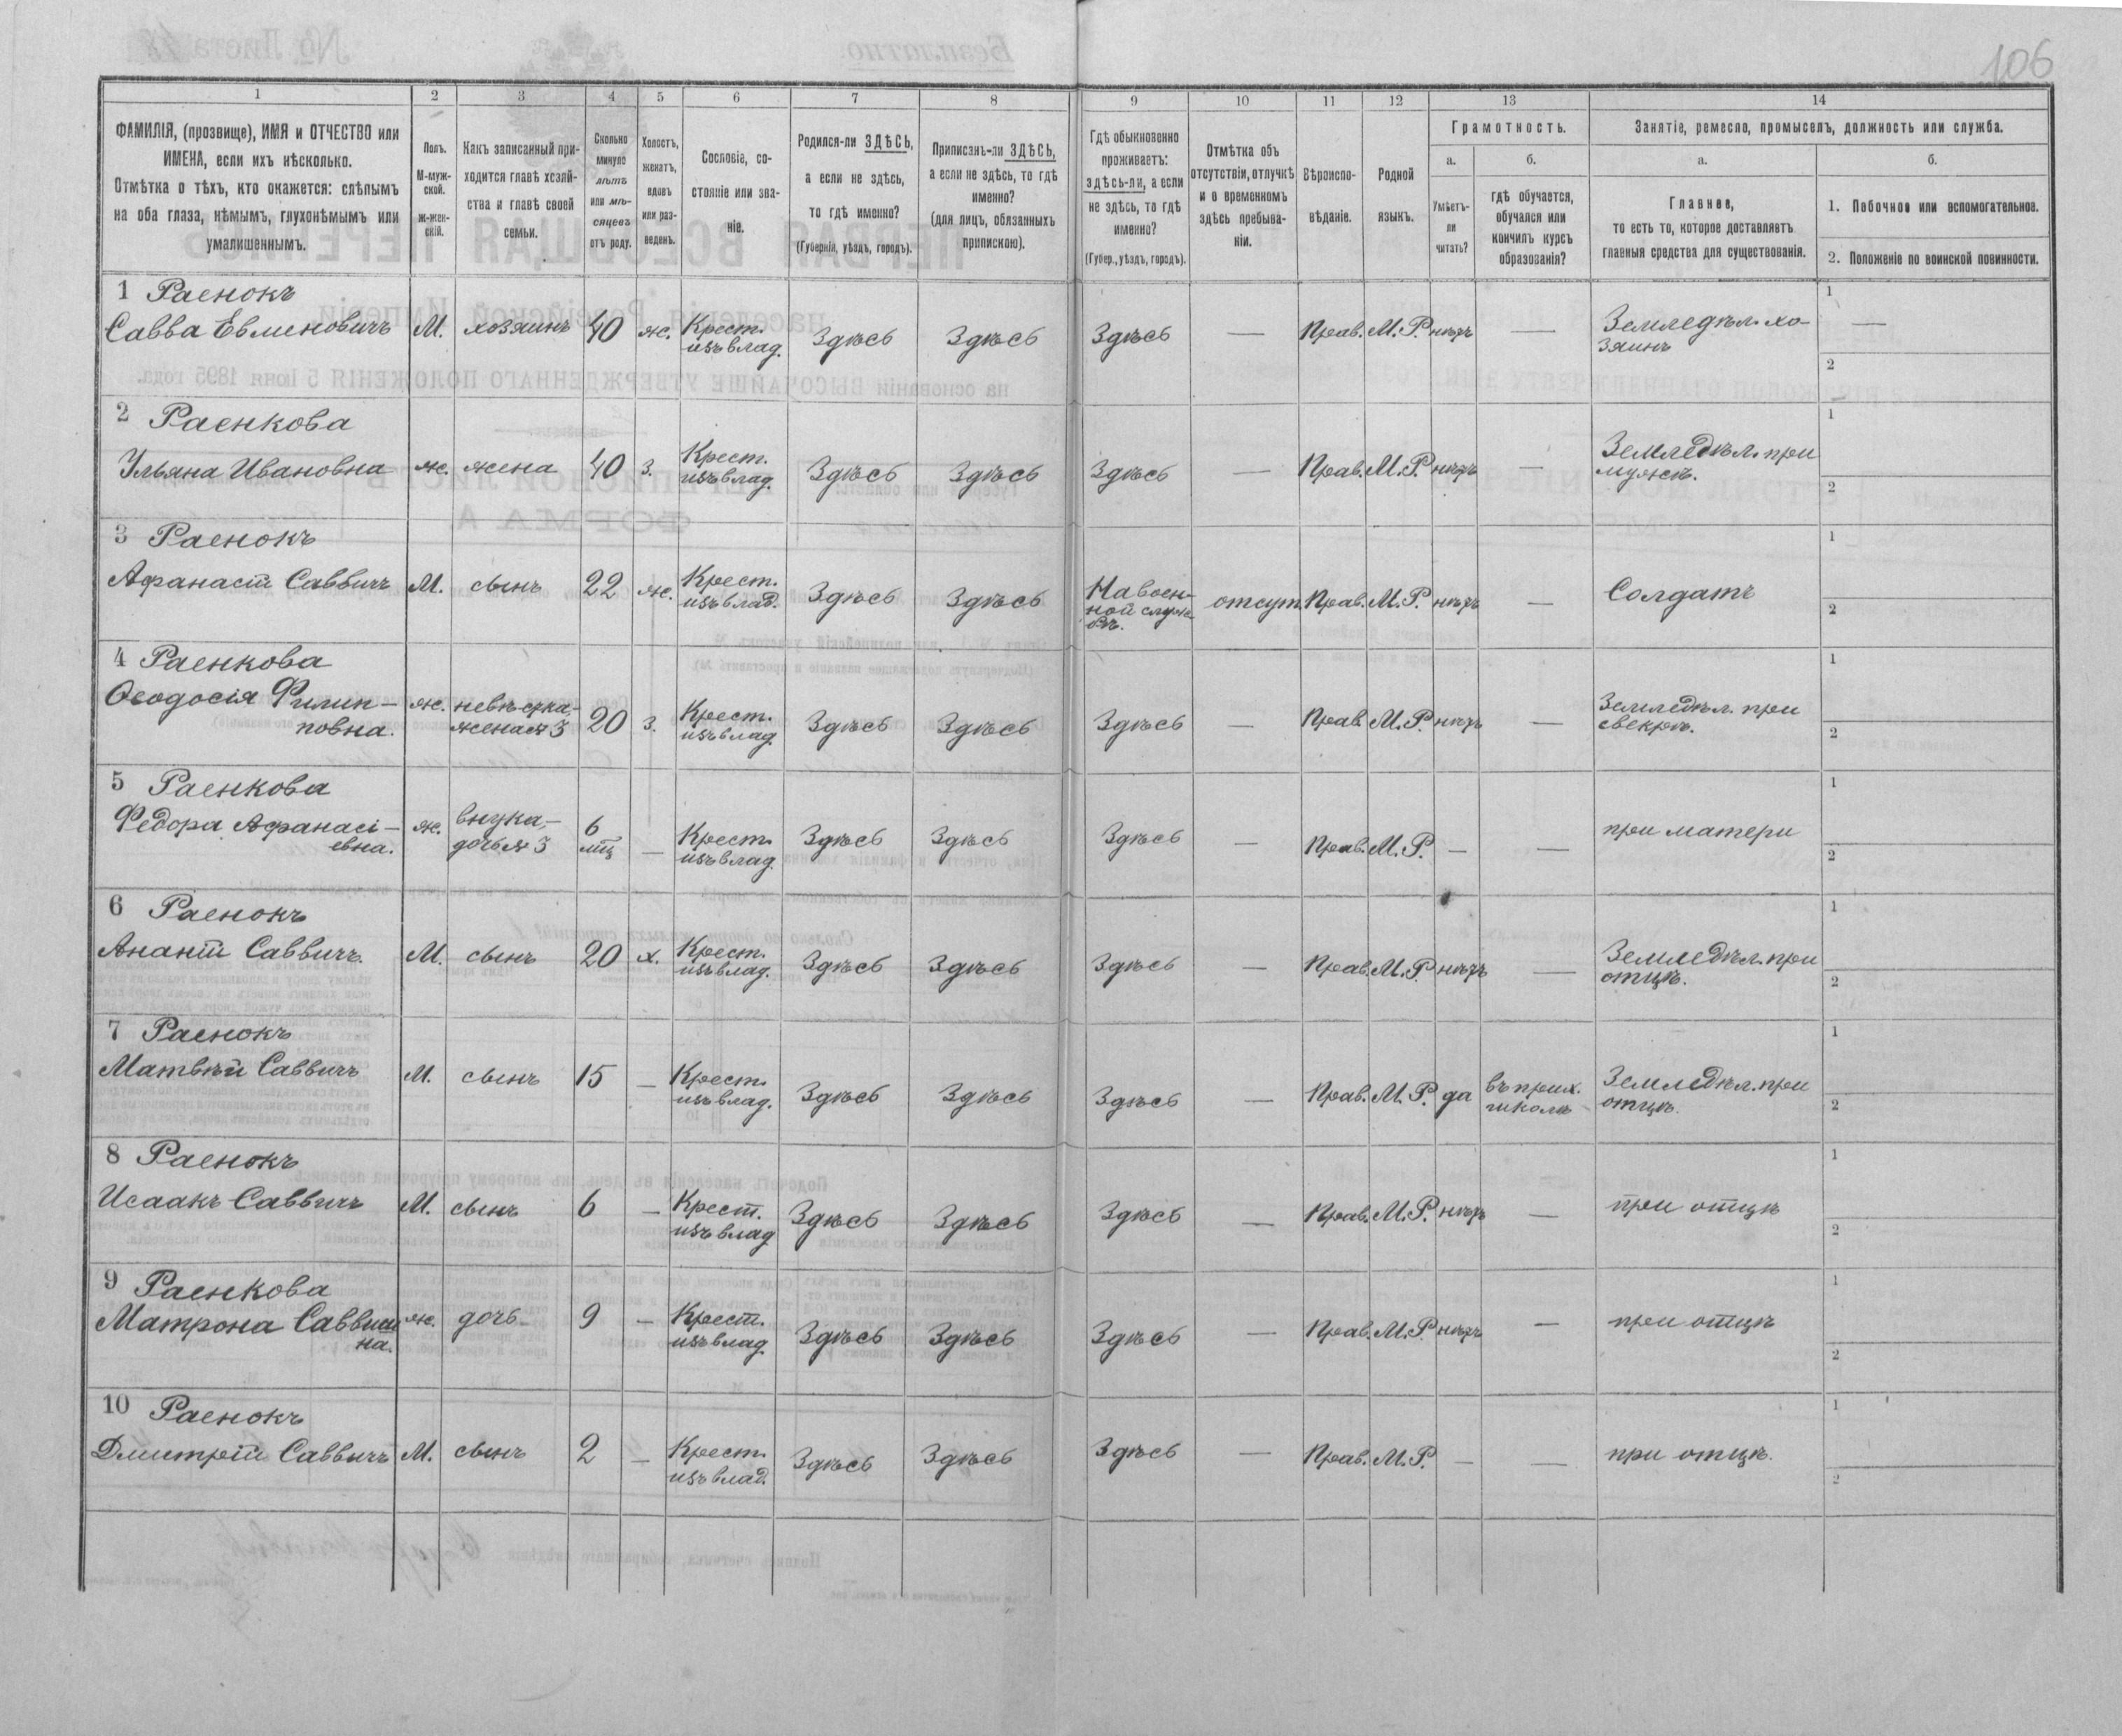 106
1 2 3 4 5 6 7 8 9 10 11 12 13 14
ФАМИЛІЯ, (прозвище), ИМЯ и ОТЧЕСТВО или
ИМЕНА, если ихъ нѣсколько.
Отмѣтка о тѣхъ, кто окажется: слѣпымъ
на оба глаза, нѣмымъ, глухонѣмымъ или
умалишеннымъ.
Полъ.
М-муж-
ской.
Ж-жен-
скій.
Какъ записанный при-
ходится главѣ хозяй-
ства и главѣ своей
семьи.
Сколько
минуло
лѣтъ
или мѣ-
сяцевъ
отъ роду.
Холостъ,
женатъ,
вдовъ
или раз-
веденъ.
Сословіе, со-
стояніе или зва-
ніе.
Родился-ли ЗДѢСЬ,
а если не здѣсь,
то гдѣ именно?
(Губернія, уѣздъ, городъ).
Приписанъ-ли ЗДѢСЬ,
а если не здѣсь, то гдѣ
именно?
(для лицъ, обязанныхъ
припискою).
Гдѣ обыкновенно
проживаетъ:
здѣсь-ли, а если
не здѣсь, то гдѣ
именно?
(Губер., уѣздъ, городъ).
Отмѣтка объ
отсутствіи, отлучкѣ
и о временномъ
здѣсь пребыва-
ніи.
Вѣроиспо-
вѣданіе.
Родной
языкъ.
Грамотность.
а.
Умѣетъ-
ли
читать?
б.
гдѣ обучается,
обучался или
кончилъ курсъ
образованія?
Занятіе, ремесло, промыселъ, должность или служба.
а.
Главное,
то есть то, которое доставляетъ
главныя средства для существованія.
б.
1. Побочное или вспомогательное.
2. Положеніе по воинской повинности.
1 Раенокъ
Савва Евменовичъ М. хозяинъ 40 ж. Крест. изъ влад. Здѣсь Здѣсь Здѣсь — Прав. М.Р. нѣтъ — Земледѣл. хо-
зяинъ
1 —
2
2 Раенкова
Ульяна Ивановна ж. жена 40 з. Крест. изъ влад. Здѣсь Здѣсь Здѣсь — Прав. М.Р. нѣтъ — Земледѣл. при
мужѣ.
1
2
3 Раенокъ
Афанасій Саввичъ М. сынъ 22 ж. Крест. изъ влад. Здѣсь Здѣсь На воен-
ной служ-
бѣ. отсут. Прав. М.Р. нѣтъ — Солдатъ
1
2
4 Раенкова
Ѳеодосія Филип-
повна. ж. невѣстка,
жена № 3 20 з. Крест. изъ влад. Здѣсь Здѣсь Здѣсь — Прав. М.Р. нѣтъ — Земледѣл. при
свекрѣ.
1
2
5 Раенкова
Федора Афанасі-
евна. ж. внука,
дочь № 3 6
мц — Крест. изъ влад. Здѣсь Здѣсь Здѣсь — Прав. М.Р. — — при матери
1
2
6 Раенокъ
Ананій Саввичъ. М. сынъ 20 х. Крест. изъ влад. Здѣсь Здѣсь Здѣсь — Прав. М.Р. нѣтъ — Земледѣл. при
отцѣ.
1
2
7 Раенокъ
Матвѣй Саввичъ М. сынъ 15 — Крест. изъ влад. Здѣсь Здѣсь Здѣсь — Прав. М.Р. да въ прих.
школѣ Земледѣл. при
отцѣ.
1
2
8 Раенокъ
Исаакъ Саввичъ М. сынъ 6 — Крест. изъ влад Здѣсь Здѣсь Здѣсь — Прав. М.Р. нѣтъ — при отцѣ
1
2
9 Раенкова
Матрона Саввиш
на. ж. дочь 9 — Крест. изъ влад. Здѣсь Здѣсь Здѣсь — Прав. М.Р. нѣтъ — при отцѣ
1
2
10 Раенокъ
Дмитрій Саввичъ М. сынъ 2 — Крест. изъ влад. Здѣсь Здѣсь Здѣсь — Прав. М.Р. — — при отцѣ.
1
2